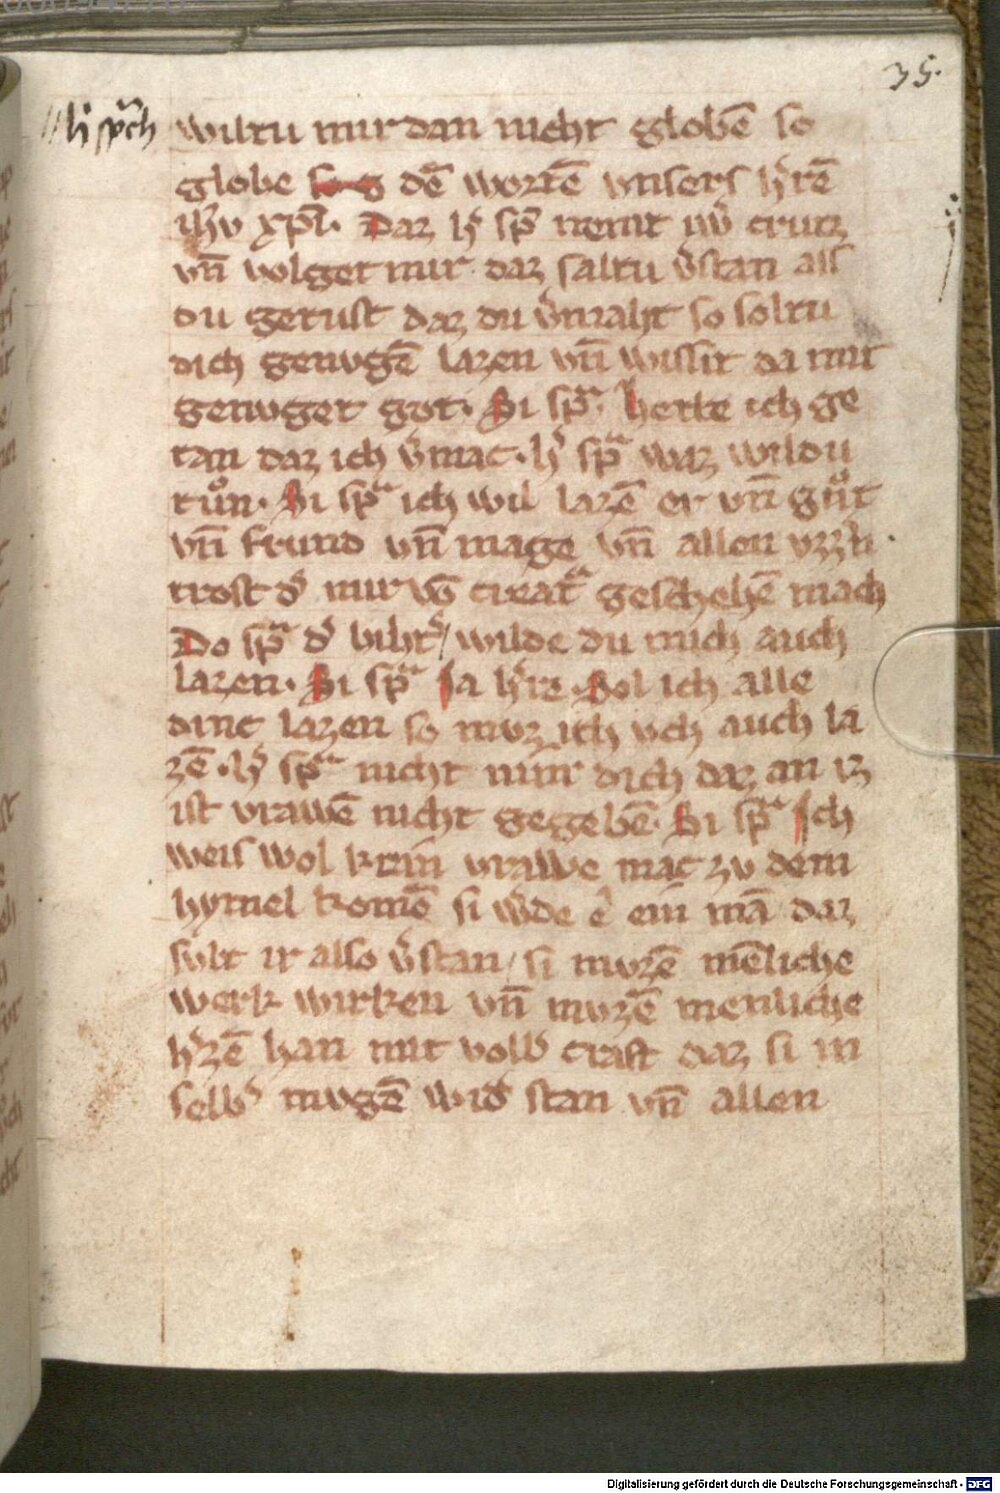 35.
h' sp̄ch wiltu mir dan nicht globē so
globe dē wortē vnsers h'rē
ih'v xp̄i. Daz h' sp̄ nemt iw' crutz
vn̄ volget mir daz saltu v'stan als
du getust daz du v'maht so soltu
dich genvgē lazen vn̄ wissit da mit
genvget got. Si sp̄ᵃ. hette ich ge
tan daz ich v'mac. h' sp̄ᵃ waz wildu
tůn. Si sp̄ᵃ ich wil lazē er vn̄ gůt
vn̄ frund vn̄ mage vn̄ allen
trost d' mir vō creatᵃ geschehē mach
Do sp̄ᵃ d' biht' / wilde du mich auch
lazen. Si sp̄ᵃ ja h're. Sol ich alle
dinc lazen so mvz ich vch auch la
zē. h' sp̄ᵃ nicht nim dich daz an iz
ist vrawē nicht gegebē. Si sp̄ᵃ Jch
weis wol kein vrawe mac zv dem
hymel komē si w'de ē ein mā daz
sult ir also v'stan / si mvzē mēliche
werk wirken vn̄ mvzē menliche
h'zē han mit voll' craft daz si in
selb' mvgē wid' stan vn̄ allen
Digitalisierung gefördert durch die Deutsche Forschungsgemeinschaft - DFG